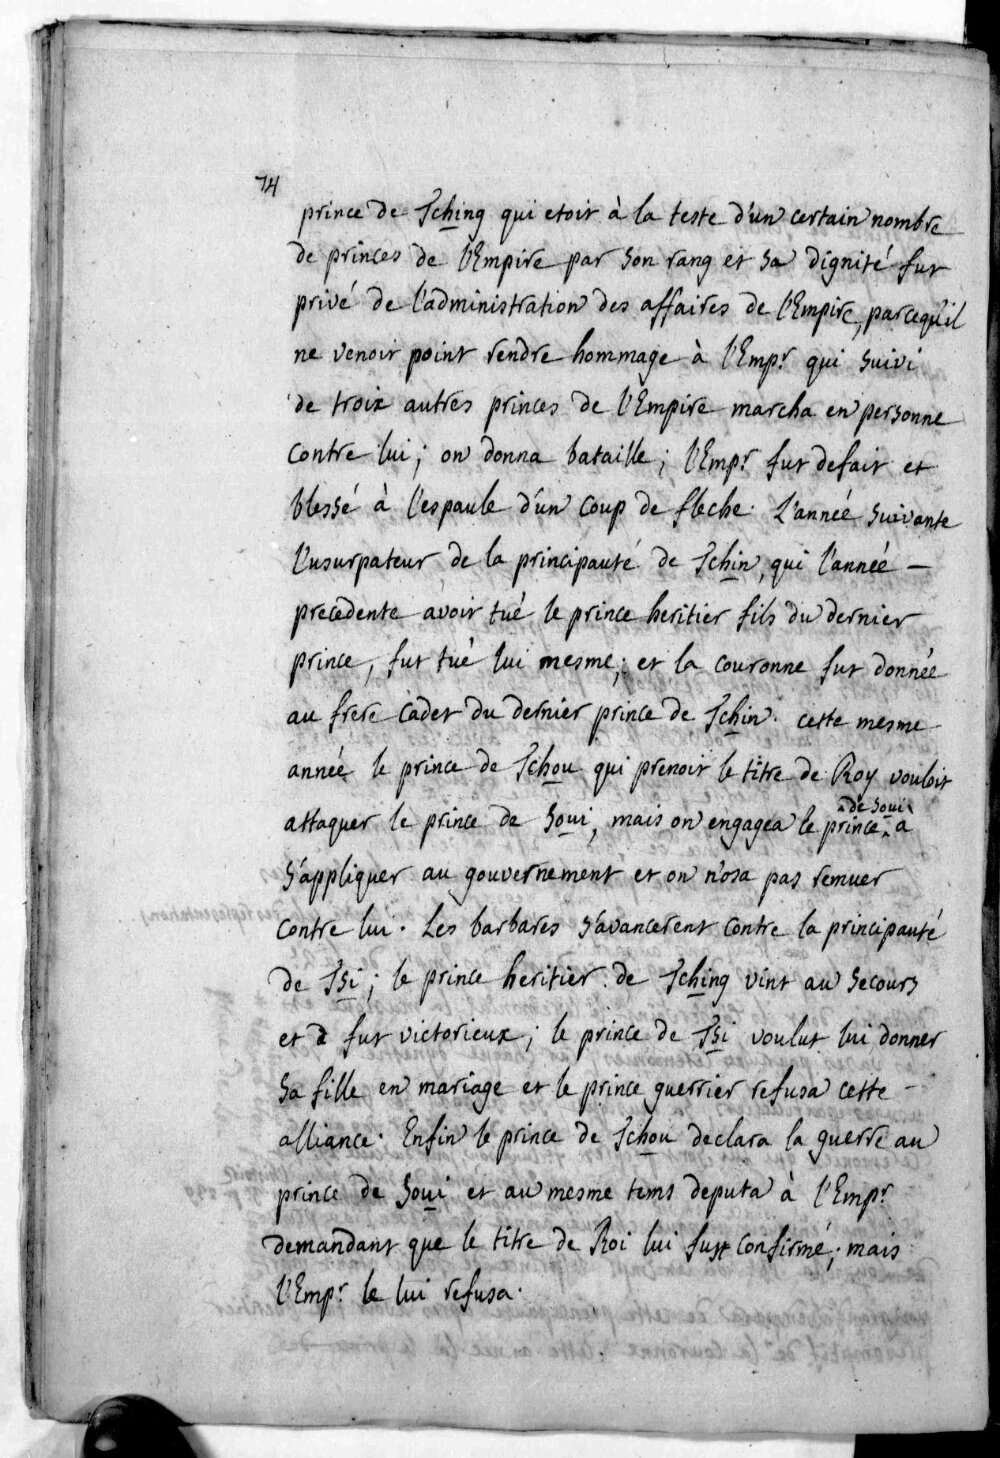 74
prince de Tching qui etoit à la teste d'un certain nombre
de princes de l'Empire par son rang et sa dignité fut
privé de l'administration des affaires de l'Empire, parcequ'il
ne venoit point rendre hommage à l'Empr qui suivi
de troix autres princes de l'Empire marcha en personne
contre lui; on donna bataille; l'Empr fut defait et
blessé à l'espaule d'un coup de fleche. L'année suivante
l'usurpateur de la principauté de Tchin, qui l'année –
precedente avoit tué le prince heritier fils du dernier
prince, fut tué lui mesme; et la couronne fut donnée
au frere cadet du dernier prince de Tchin. cette mesme
année le prince de Tchou qui prenoit le titre de Roy vouloit
attaquer le prince de Soui, mais on engagea le prince de Soui a
s'appliquer au gouvernement et on n'osa pas remuer
contre lui. Les barbares s'avancerent contre la principauté
de Tsi; le prince heritier de Tching vint au secours
et fut victorieux; le prince de Tsi voulut lui donner
sa fille en mariage et le prince guerrier refusa cette –
alliance. Enfin le prince de Tchou declara la guerre au
prince de Soui et au mesme tems deputa à l'Empr
demandant que le titre de Roi lui fust confirmé; mais
l'Empr le lui refusa.